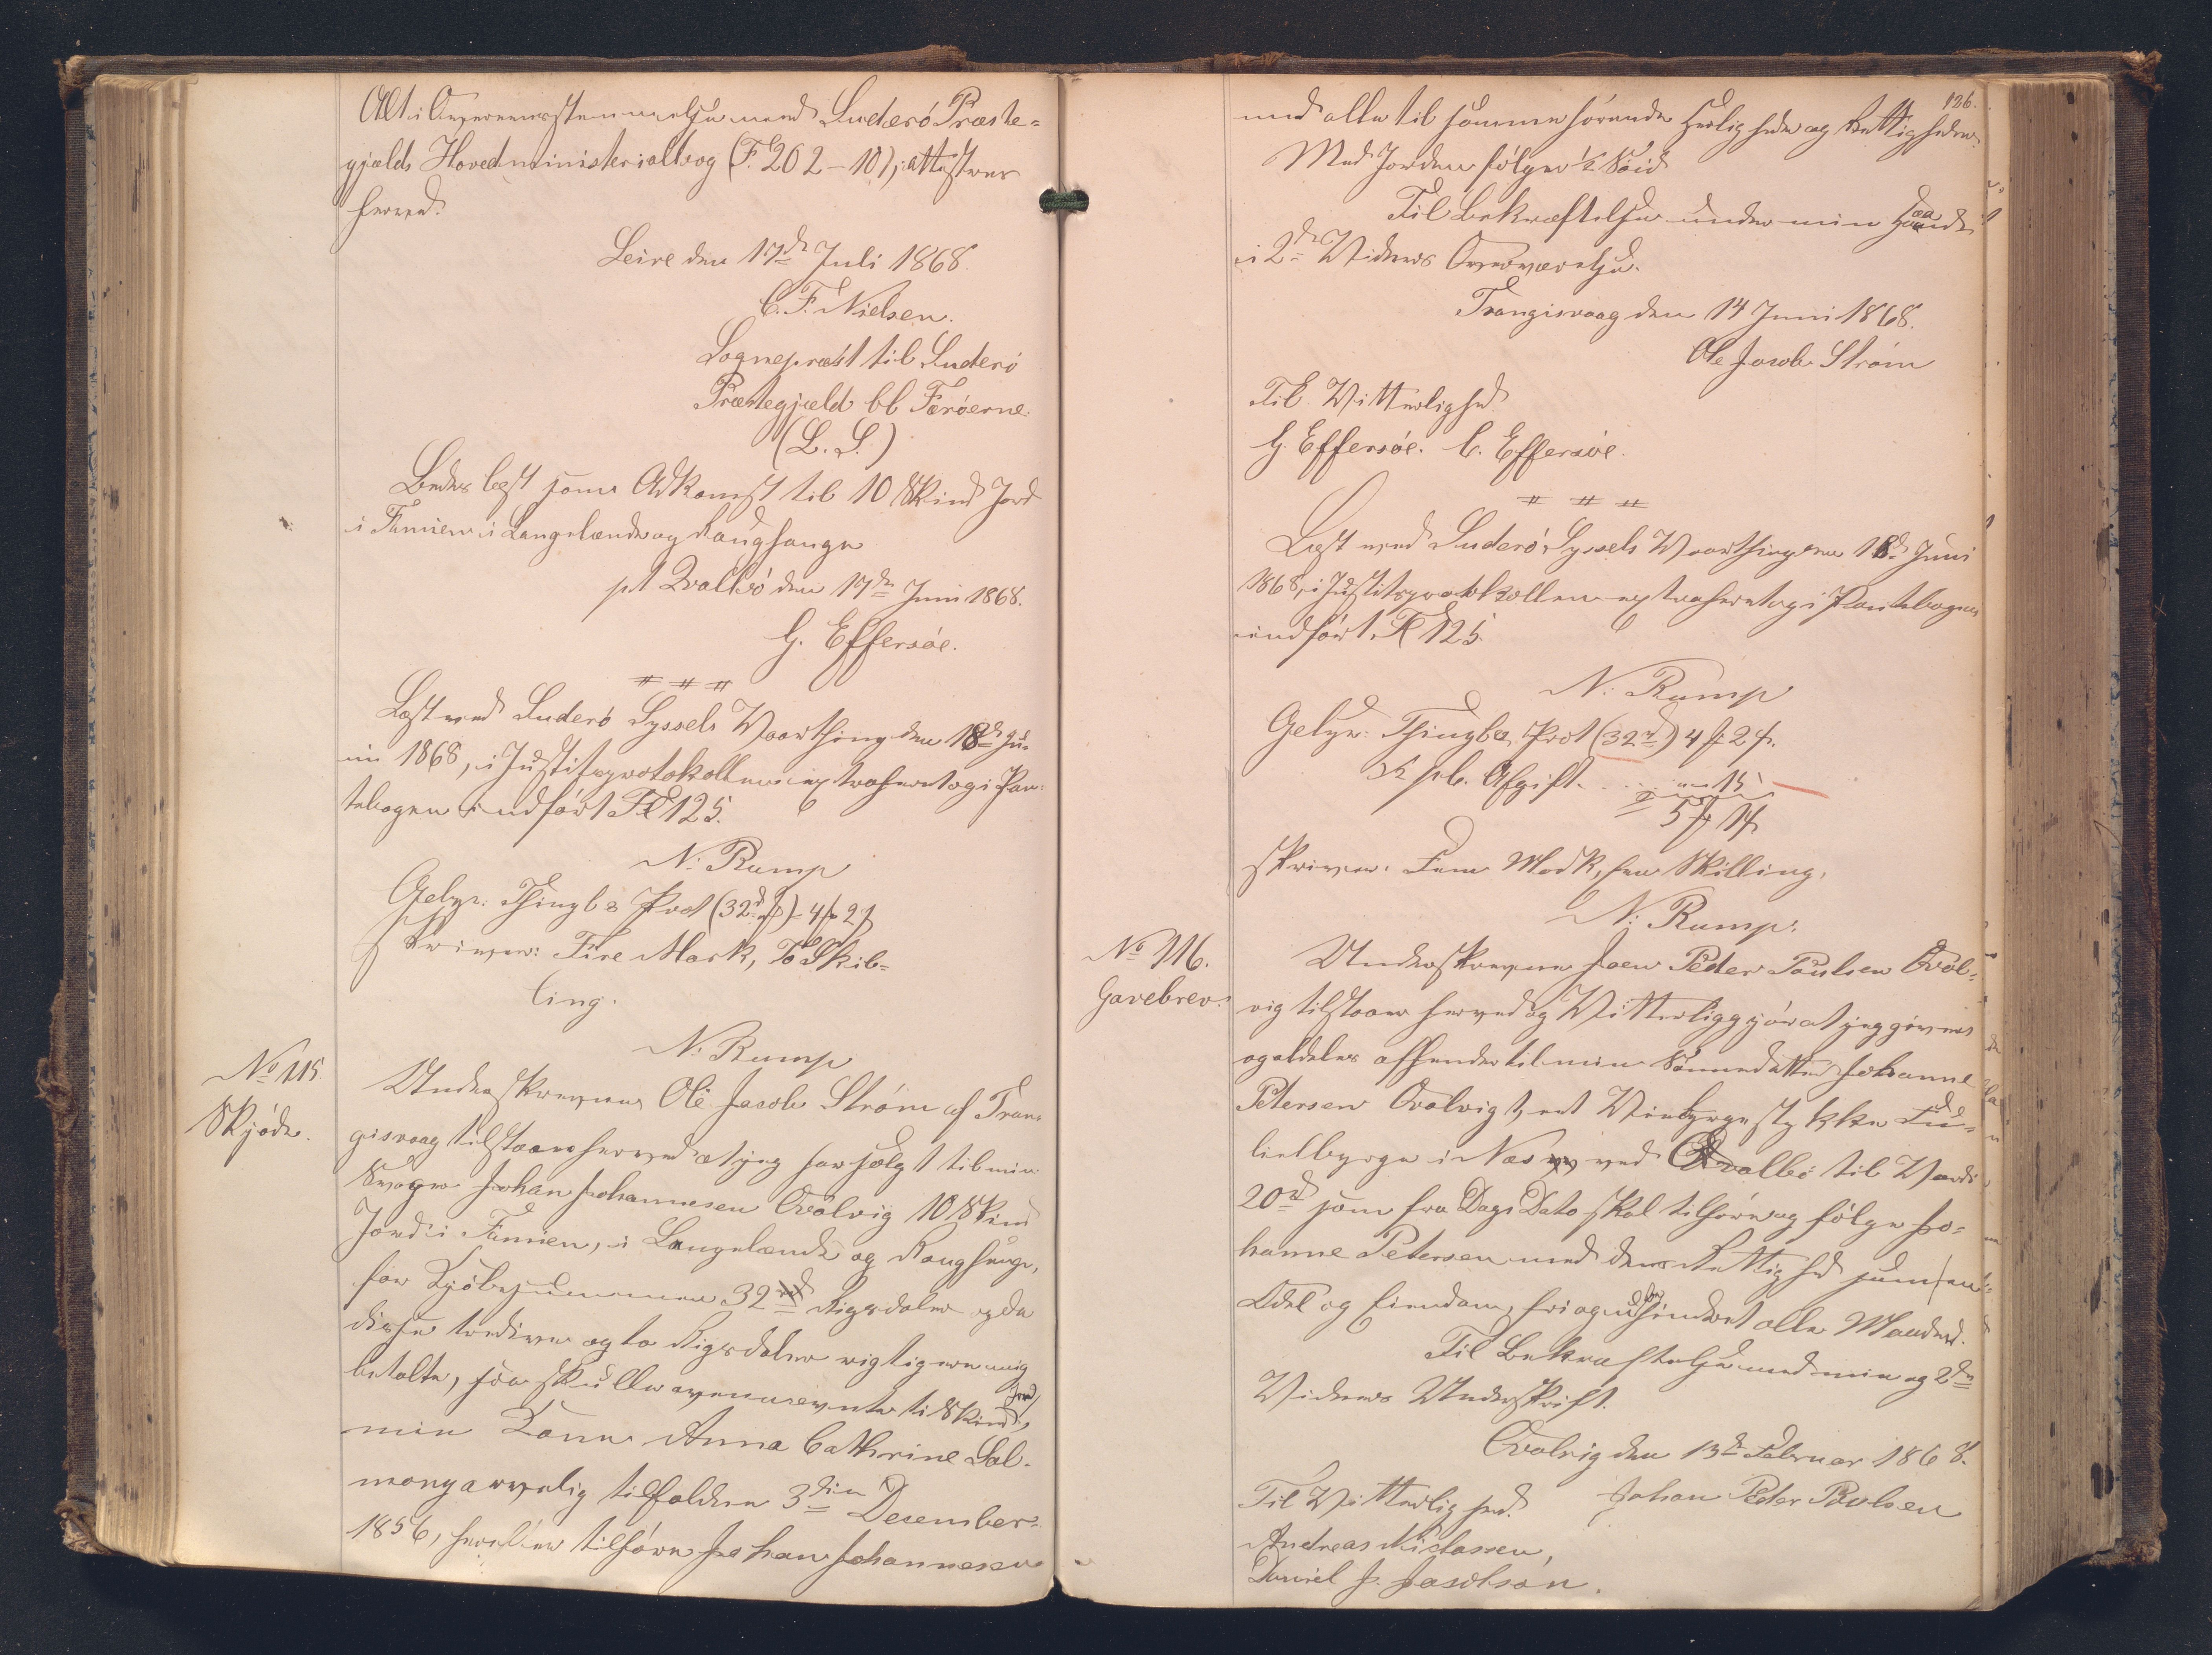 Alt i Overeensstemmelse med Suderö Præste-
gjelds Hovedministerialbog (F. 202 - 10), attesteres
herved.
Leire den 17de Juli 1868.
C. F. Nielsen.
Sognepræst til Suderö
Præstegjæld bl Færöerne.
(L. S.)
Bedes læst som Adkomst til 10 Skind Jord
i Famien i Langelænde og Kaughauge
pt Qvalbö den 17de Juni 1868.
G. Effersöe.
Læst ved Suderö Syssels Vaarthing den 18de Ju-
ni 1868, i Justitsprotokollen extraheret og i Pan-
tebogen indfört Fl 125.
N. Rump
Gebyr. Thingl & Prot (32 rd) - 4 # 2 ß
skriver: Fire Mark, To Skil-
ling.
N. Rump
No 115.
Skjöde.
Underskrevne Ole Jacob Ström af Tran-
gisvaag tilstaaer herved at jeg har solgt til min
Svoger Johan Johannesen Qvalvig 10 Skind
Jord i Famien, i Langelænde og Kaughauge,
for Kjöbesummen 32 rd Rigsdaler og da
disse tredive og to Rigsdaler rigtig ere mig
betalte, saa skulle ovennævnte ti Skind Jord,
min Kone Anna Cathrine Sal-
mong arvelig tilfalden 3die December
1856, herefter tilhöre Johan Johannesen
126.
med alle til samme hörende Herligheder og Rettigheder.
Med Jorden fölger ½ Söid
Til Bekræftelse under min Haand
i 2de Vidners Overværelse.
Trangisvaag den 14 Juni 1868.
Ole Jacob Ström
Til Vitterlighed.
G. Effersöe. C. Effersöe.
Læst ved Suderö Syssels Vaarthing den 18de Juni
1868, i Justitsprotokollen extraheret og i Pantebogen
indfört Fl 125.
N. Rump
Gebyr. Thingl & Prot (32 rd) 4 # 2 ß.
½ pC. Afgift . . . " 15
5 # 1 ß
skriver: Fem Mark, een Skilling.
N. Rump.
No 116.
Gavebrev.
Underskrevne Joen Peder Poulsen Qvol-
vig tilstaaer herved og Vitterliggjör at jeg giver
og aldeles afhender til min Sönnedatter Johanne
Petersen Qvolvig 1, et Stykke
lielbyrge i Næs ved Qvalbö til Værdi
20 rd som fra Dags Dato skal tilhöre og fölge Jo-
hanne Petersen med den Rettighed som en
Odel og Eiendom, fri og ubehindret alle Mands.
Til Bekræftelse med min og 2de
Vidners Underskrift.
Qvolvig den 13de Februar 1868.
Til Vitterlighed. Johan Peder Poulsen
Andreas Niclassen,
Daniel J. Jacobson.